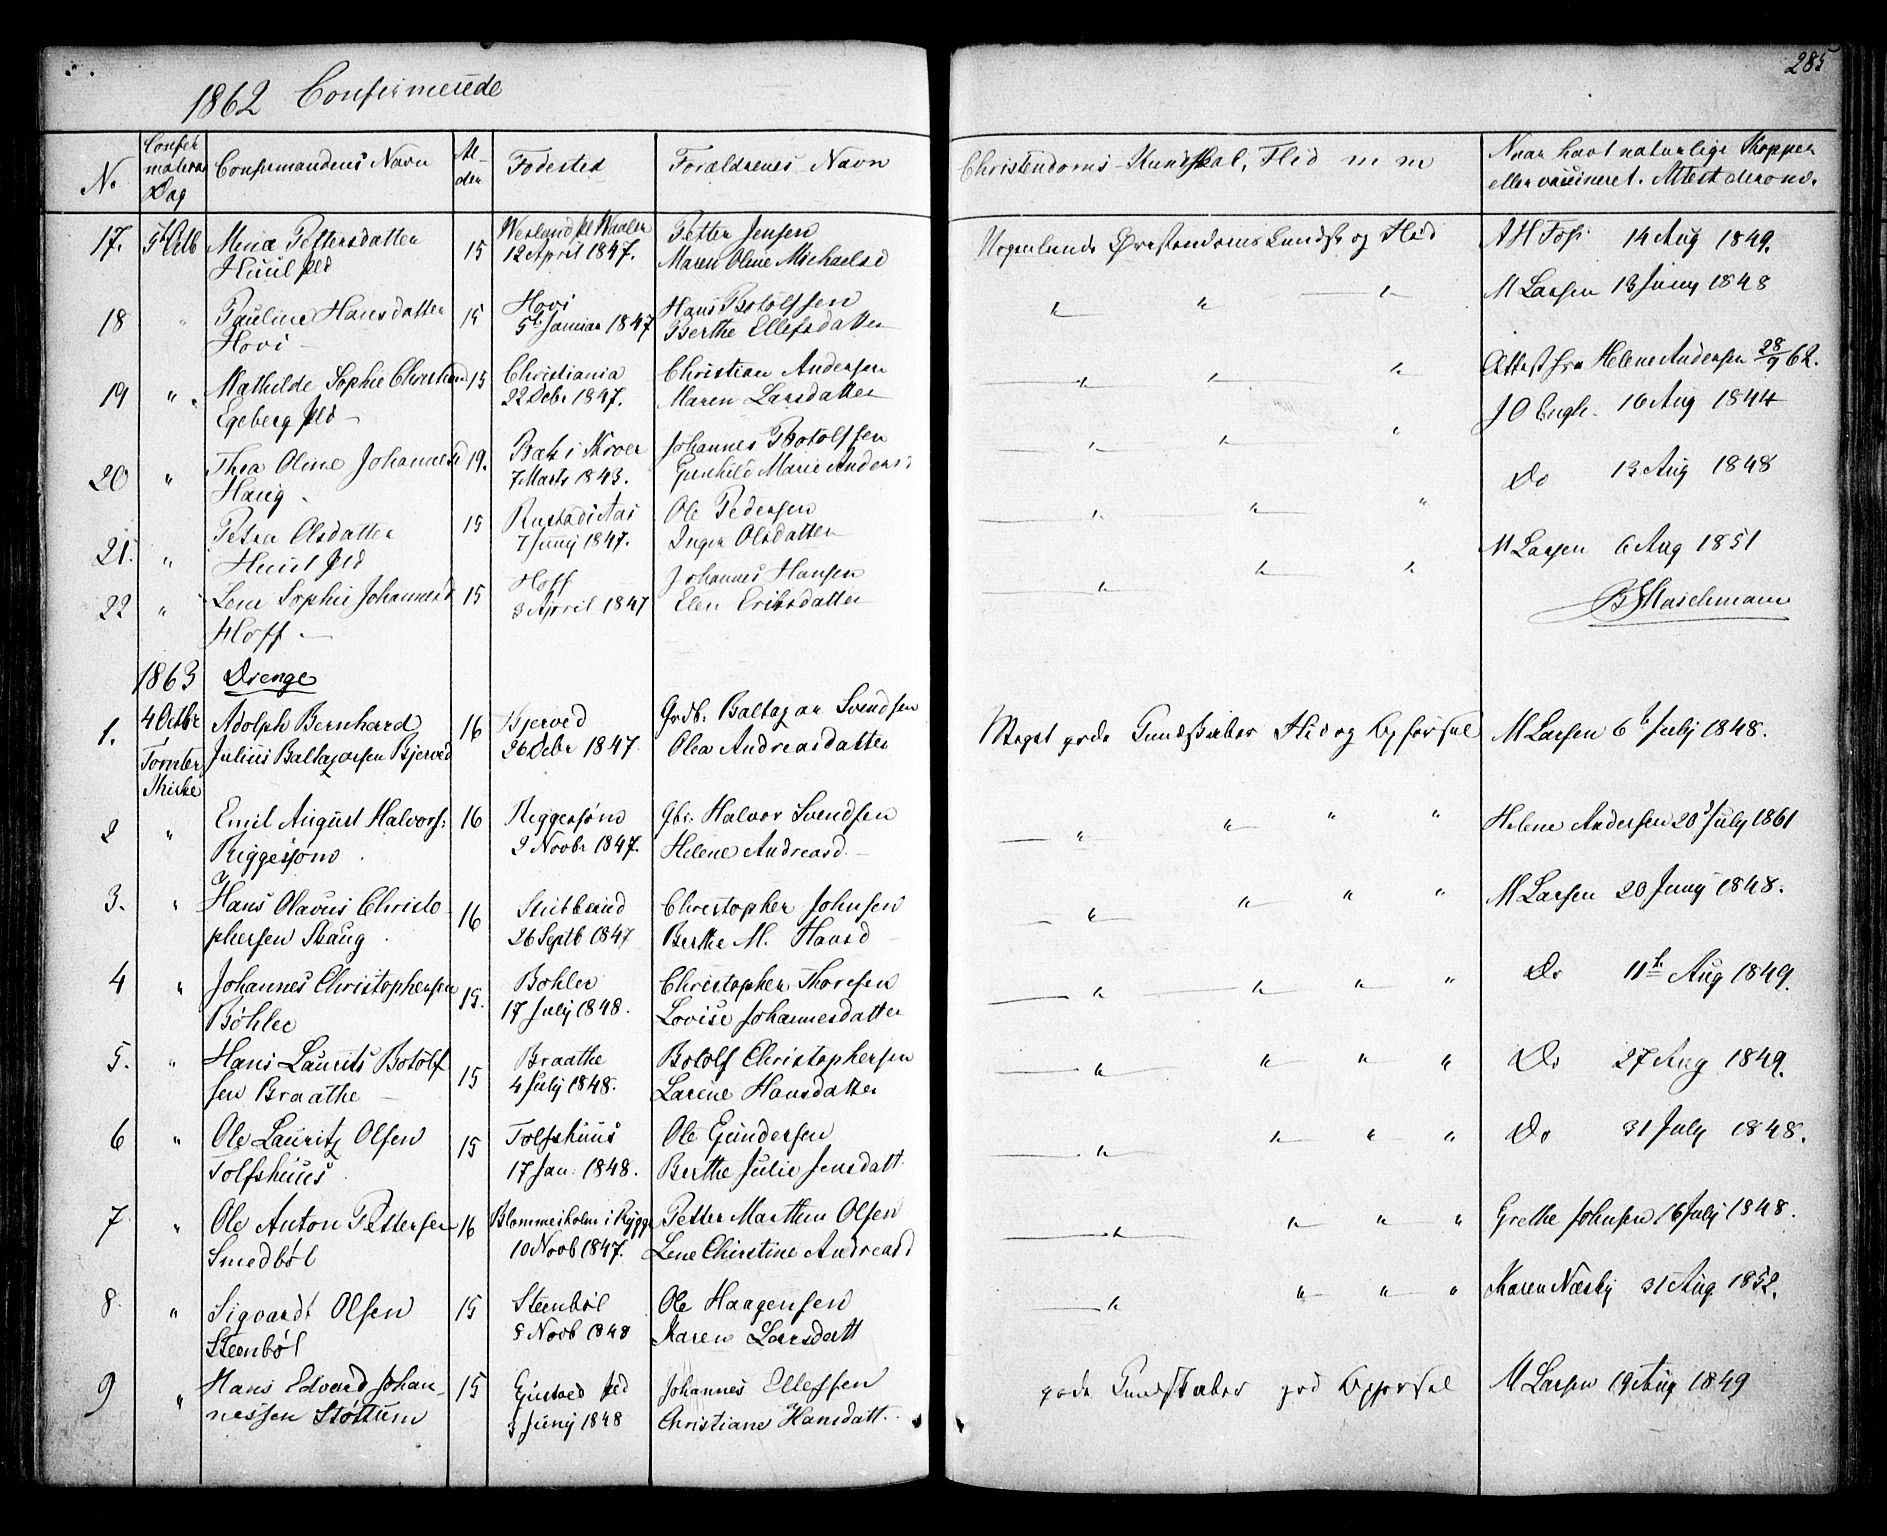 285
1862 Confirmerede
No Confirmations Dag Confirmandens Navn Alder Fødested Forældrenes Navn Christendoms-Kundskab, Flid m m Naar havt naturlige Kopper
eller vaccineret. Attest derom.
17. 5 Octb Mina Pettersdatter 15 Petter Jensen og Flid A H Foss 14 Aug 1849.
12 April 1847. Maren Oline Michaelsd
18 " Pauline Hansdatter 15 Hovi Hans Botolfsen " " " M Larsen 13 Juny 1848
Hovi 5te Januar 1847 Berthe Ellefsdatter
19 " Mathilde Sophie Christiand 15 Christiania Christian Andersen " " " Attest fra Helene Andersen 28/9 62.
Egeberg Eld 22 Debr 1847. Maren Larsdatter
20 " Thea Oline Johannesd 19. Bak i Kroer Johannes Botolfsen " " " J O Engh. 16 Aug 1844
Haug 7 Marts 1843. Gunhild Marie Anders:
21. " Petra Olsdatter 15 Rustad i Aas Ole Pedersen " " " Do 13 Aug 1848
7 Juny 1847. Inger Olsdatter
22 " Lene Sophie Johannesd 15 Hoff Johannes Hansen " " " M Larsen 6 Aug 1851
Hoff 8 April 1847 Elen Eriksdatter
1863 Drenge
1. 4 Octbr Adolph Bernhard 16 Bjerved Grdb. Baltazar Svendsen Meget gode Kundskaber Flid og Opførsel M Larsen 6te July 1848.
Tomter Kirke Julius Baltazarsen Bjerved 26 Debr 1847 Olea Andreasdatter
2 " Emil August Halvors: 16 Riggesøm Gbr. Halvor Svendsen " " " " Helene Andersen 20 July 1861
Riggesøm 2 Novbr 1847. Helene Andreasd.
3. " Hans Olavus Christo- 16 Christopher Johnsen " " " " M Larsen 20 Juny 1848.
phersen Skaug 26 Septb 1847 Berthe M. Hansd
4 " Johannes Christophersen 15. Bøhler Christopher Thoresen " " " " Do 11te Aug 1849.
Bøhler 17 July 1848. Lovise Johannesdatter
5. " Hans Laurits Botolf 15 Braathe Botolf Christophersen " " " " Do 27 Aug 1849.
sen Braathe 4 July 1848. Larine Hansdatter
6 " Ole Lauritz Olsen 15 Tolfshuus Ole Gundersen " " " " Do 31 July 1848.
Tolfshuus 17 Jan. 1848. Berthe Julie Jensdatt.
7 " Ole Anton Pettersen 16 Blommesholm i Rygge Petter Marthin Olsen " " " " Grethe Johnsen 16 July 1848.
Smedbøl 10 Novb 1847. Lene Christine Andreasd
8 " Sigvardt Olsen 15 Steenbøl Ole Haagensen " " " " Karen Næsby 31 Aug 1852.
Steenbøl 5 Novb 1848 Karen Larsdatt
9 " Hans Edvard Johan- 15 Johannes Ellefsen gode Kundskaber god Opførsel M Larsen 19 Aug 1849
nessen Støttum 3 Juny 1848 Christiane Hansdatt.